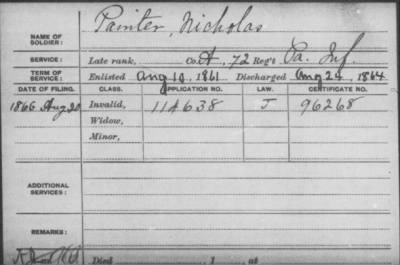 NAME OF SOLDIER: Painter, Nicholas
SERVICE: Late rank, Co. A, 72 Reg't Pa. Inf.
TERM OF SERVICE: Enlisted Aug 10, 1861 Discharged Aug 24, 1864
DATE OF FILING. CLASS. APPLICATION NO. LAW. CERTIFICATE NO.
1866 Aug 20 Invalid, 114638 J 96268
Widow,
Minor,
ADDITIONAL SERVICES:
REMARKS:
Died , 1 , at